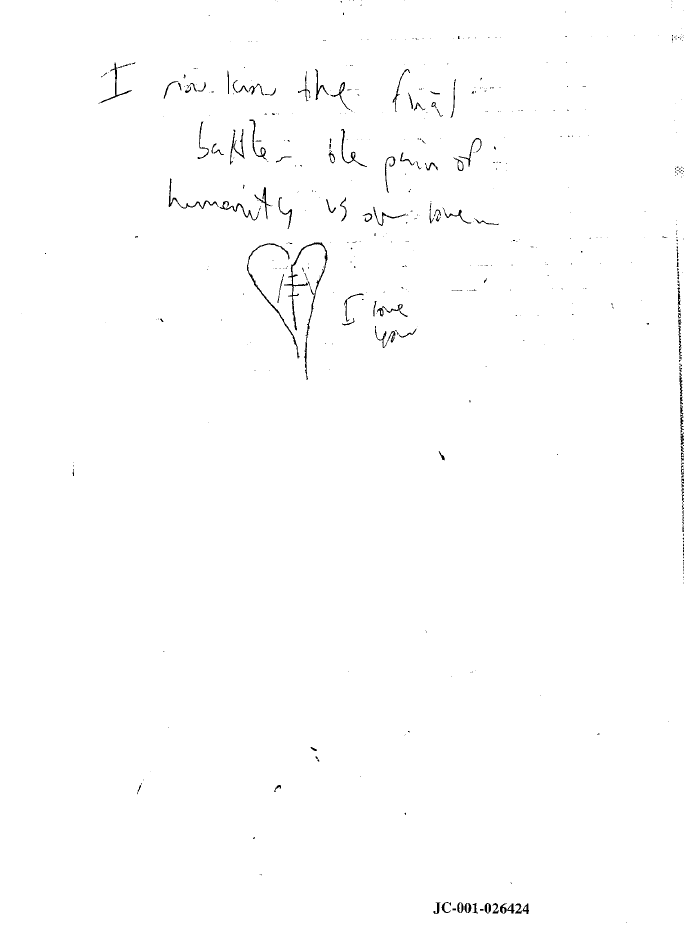 I now know the final
battle - the pain of
humanity vs our love
I love
you
JC-001-026424